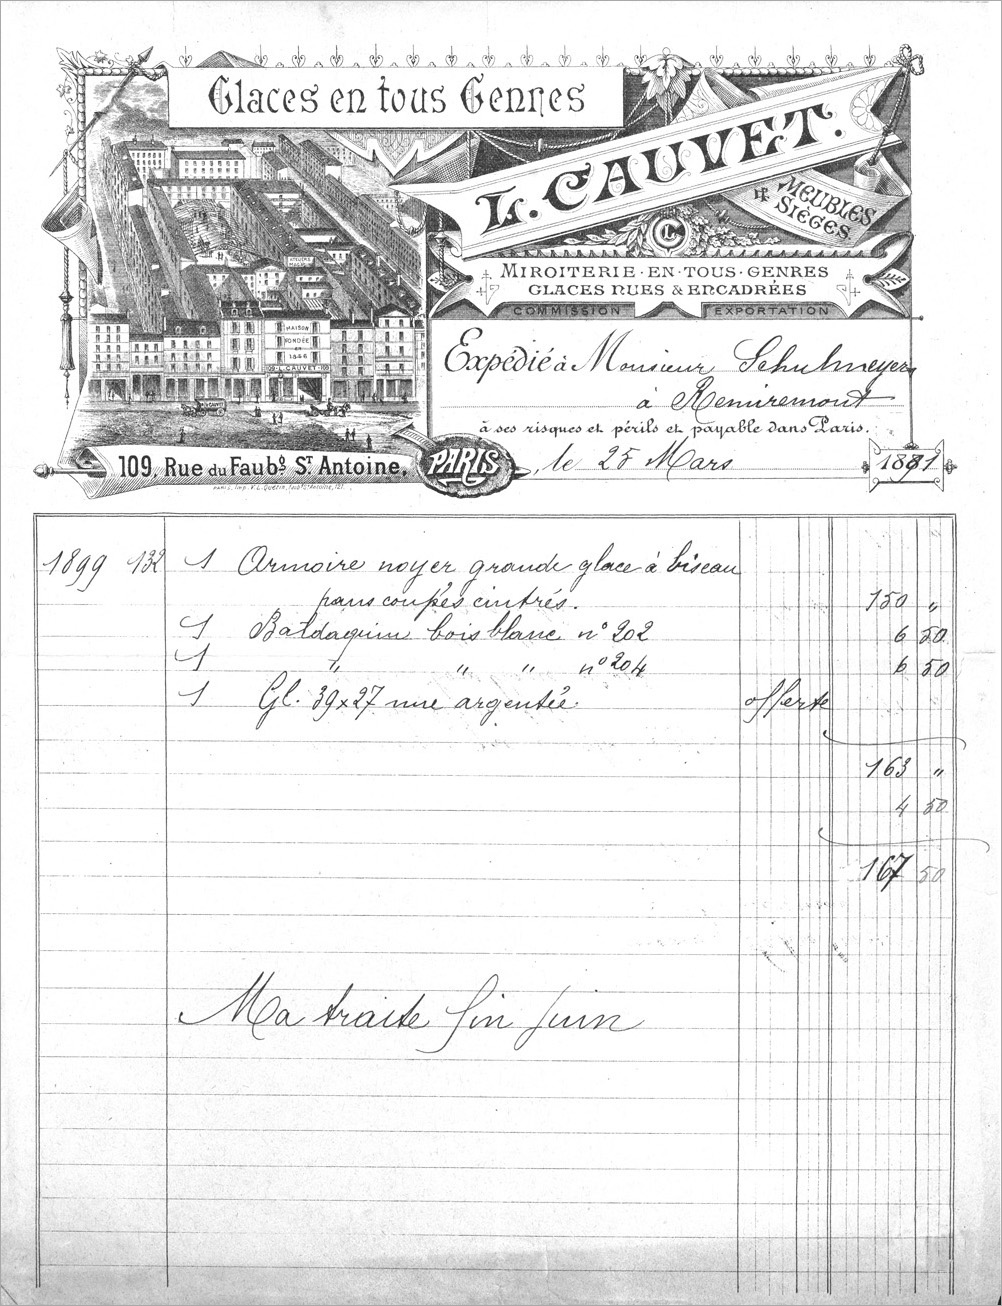 Glaces en tous Genres
L. CAUVET.
MEUBLES
& SIÈGES
CL
MIROITERIE·EN·TOUS·GENRES
GLACES NUES & ENCADRÉES
COMMISSION EXPORTATION
ATELIERS
MAISON
FONDÉE
EN
1856
109·L. CAUVET·109
Expédié à Monsieur Schulmeyer
à Remiremont
à ses risques et périls et payable dans Paris.
109, Rue du Faubg. St Antoine. PARIS, le 25 Mars 1891
1899 132 1 Armoire noyer grande glace à biseau
pans coupés cintrés. 150 "
1 Baldaquin bois blanc n° 202 6 50
1 " " " n° 204 6 50
1 Gl. 39x27 nue argentée offerte
163 "
4 50
167 50
Ma traite fin juin